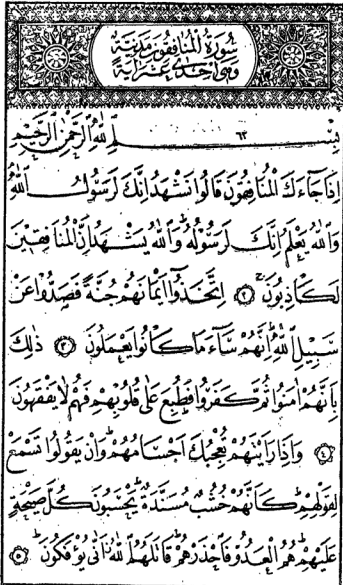 سُورَةُ الْمُنَافِقُونَ مَدَنِيَّةٌ
وَهِيَ اِحْدٰى عَشْرَةَ اٰيَةً
٦٣
بِسْمِ اللّٰهِ الرَّحْمٰنِ الرَّحِيمِ
اِذَا جَاءَكَ الْمُنَافِقُونَ قَالُوا نَشْهَدُ اِنَّكَ لَرَسُولُ اللّٰهِ
وَاللّٰهُ يَعْلَمُ اِنَّكَ لَرَسُولُهُ وَاللّٰهُ يَشْهَدُ اِنَّ الْمُنَافِقِينَ
لَكَاذِبُونَ ﴿٢﴾ اِتَّخَذُوا اَيْمَانَهُمْ جُنَّةً فَصَدُّوا عَنْ
سَبِيلِ اللّٰهِ اِنَّهُمْ سَاءَ مَا كَانُوا يَعْمَلُونَ ﴿٣﴾ ذٰلِكَ
بِاَنَّهُمْ اٰمَنُوا ثُمَّ كَفَرُوا فَطُبِعَ عَلٰى قُلُوبِهِمْ فَهُمْ لَا يَفْقَهُونَ
﴿٤﴾ وَاِذَا رَاَيْتَهُمْ تُعْجِبُكَ اَجْسَامُهُمْ وَاِنْ يَقُولُوا تَسْمَعْ
لِقَوْلِهِمْ كَاَنَّهُمْ خُشُبٌ مُسَنَّدَةٌ يَحْسَبُونَ كُلَّ صَيْحَةٍ
عَلَيْهِمْ هُمُ الْعَدُوُّ فَاحْذَرْهُمْ قَاتَلَهُمُ اللّٰهُ اَنّٰى يُؤْفَكُونَ ﴿٥﴾